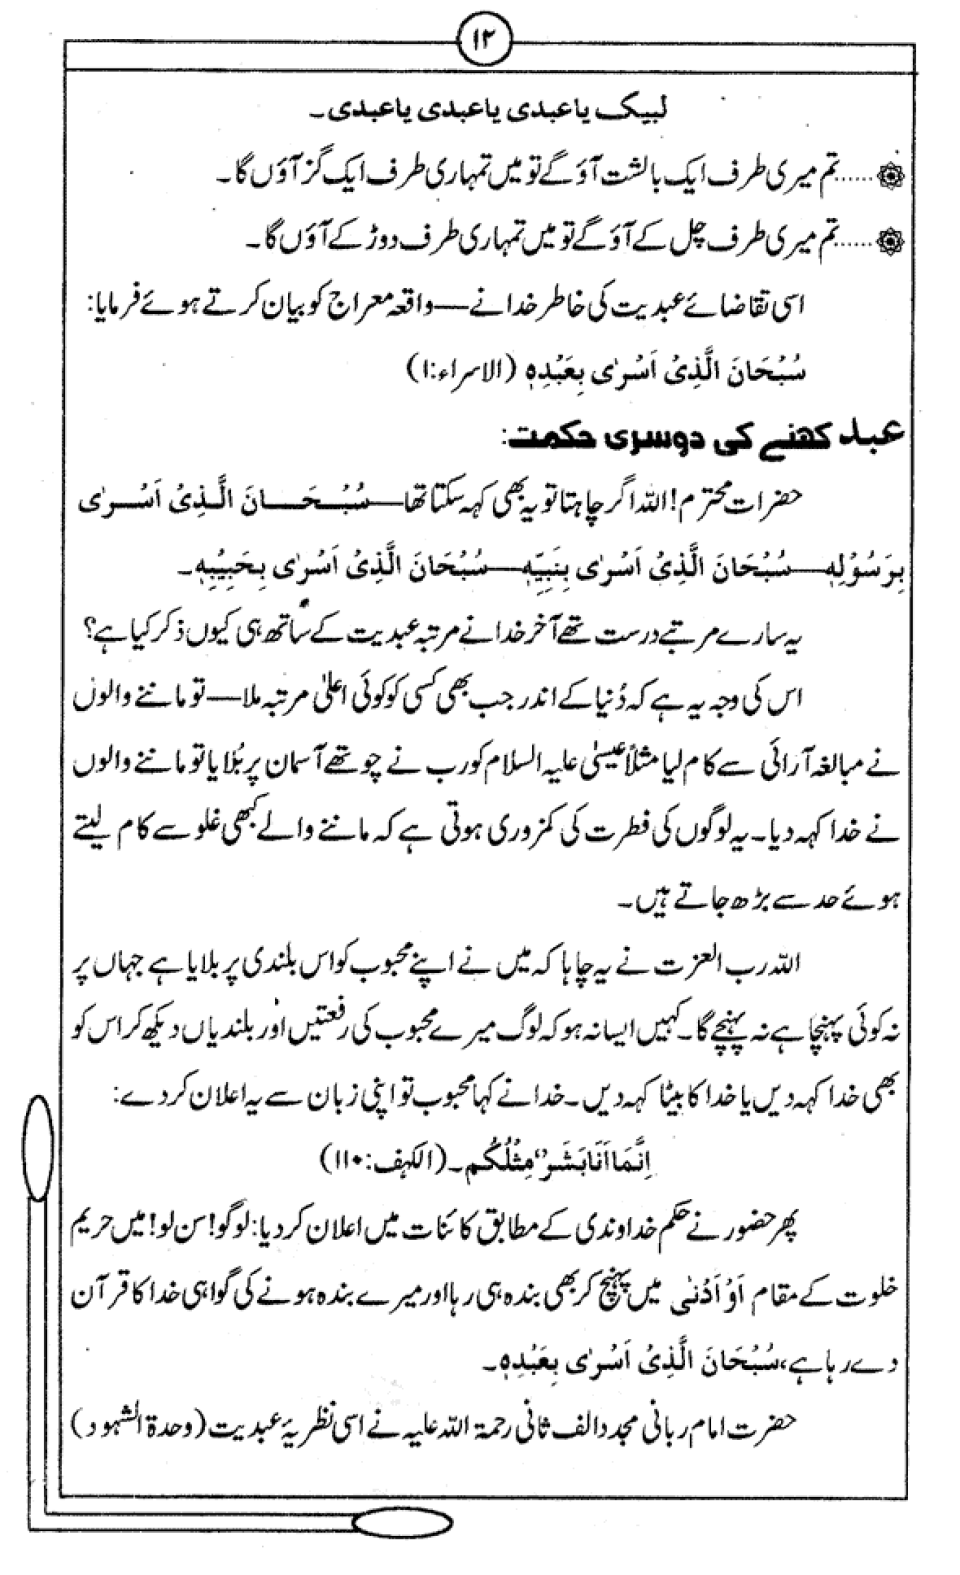 ۱۲
لبیک یاعبدی یاعبدی یاعبدی۔
......تم میری طرف ایک بالشت آؤ گے تو میں تمہاری طرف ایک گز آؤں گا۔
......تم میری طرف چل کے آؤ گے تو میں تمہاری طرف دوڑ کے آؤں گا۔
اسی تقاضائے عبدیت کی خاطر خدا نے—واقعہ معراج کو بیان کرتے ہوئے فرمایا:
سُبْحَانَ الَّذِیْ اَسْرٰی بِعَبْدِہٖ (الاسراء:۱)
عبد کھنے کی دوسری حکمت:
حضرات محترم! اللہ اگر چاہتا تو یہ بھی کہہ سکتا تھا—سُبْحَانَ الَّذِیْ اَسْرٰی
بِرَسُوْلِہٖ—سُبْحَانَ الَّذِیْ اَسْرٰی بِنَبِیِّہٖ—سُبْحَانَ الَّذِیْ اَسْرٰی بِحَبِیْبِہٖ۔
یہ سارے مرتبے درست تھے آخر خدا نے مرتبہ عبدیت کے ساتھ ہی کیوں ذکر کیا ہے؟
اس کی وجہ یہ ہے کہ دُنیا کے اندر جب بھی کسی کو کوئی اعلیٰ مرتبہ ملا—تو ماننے والوں
نے مبالغہ آرائی سے کام لیا مثلاً عیسیٰ علیہ السلام کو رب نے چوتھے آسمان پر بُلایا تو ماننے والوں
نے خدا کہہ دیا۔ یہ لوگوں کی فطرت کی کمزوری ہوتی ہے کہ ماننے والے کبھی غلو سے کام لیتے
ہوئے حد سے بڑھ جاتے ہیں۔
اللہ رب العزت نے یہ چاہا کہ میں نے اپنے محبوب کو اس بلندی پر بلایا ہے جہاں پر
نہ کوئی پہنچا ہے نہ پہنچے گا۔ کہیں ایسا نہ ہو کہ لوگ میرے محبوب کی رفعتیں اور بلندیاں دیکھ کر اس کو
بھی خدا کہہ دیں یا خدا کا بیٹا کہہ دیں۔ خدا نے کہا محبوب تو اپنی زبان سے یہ اعلان کر دے:
اِنَّمَا اَنَا بَشَرٌ مِثْلُکُم۔ (الکہف:۱۱۰)
پھر حضور نے حکم خداوندی کے مطابق کائنات میں اعلان کر دیا: لوگو! سن لو! میں حریم
خلوت کے مقام اَوْ اَدْنٰی میں پہنچ کر بھی بندہ ہی رہا اور میرے بندہ ہونے کی گواہی خدا کا قرآن
دے رہا ہے، سُبْحَانَ الَّذِیْ اَسْرٰی بِعَبْدِہٖ۔
حضرت امام ربانی مجدد الف ثانی رحمۃ اللہ علیہ نے اسی نظریۂ عبدیت (وحدۃ الشہود)